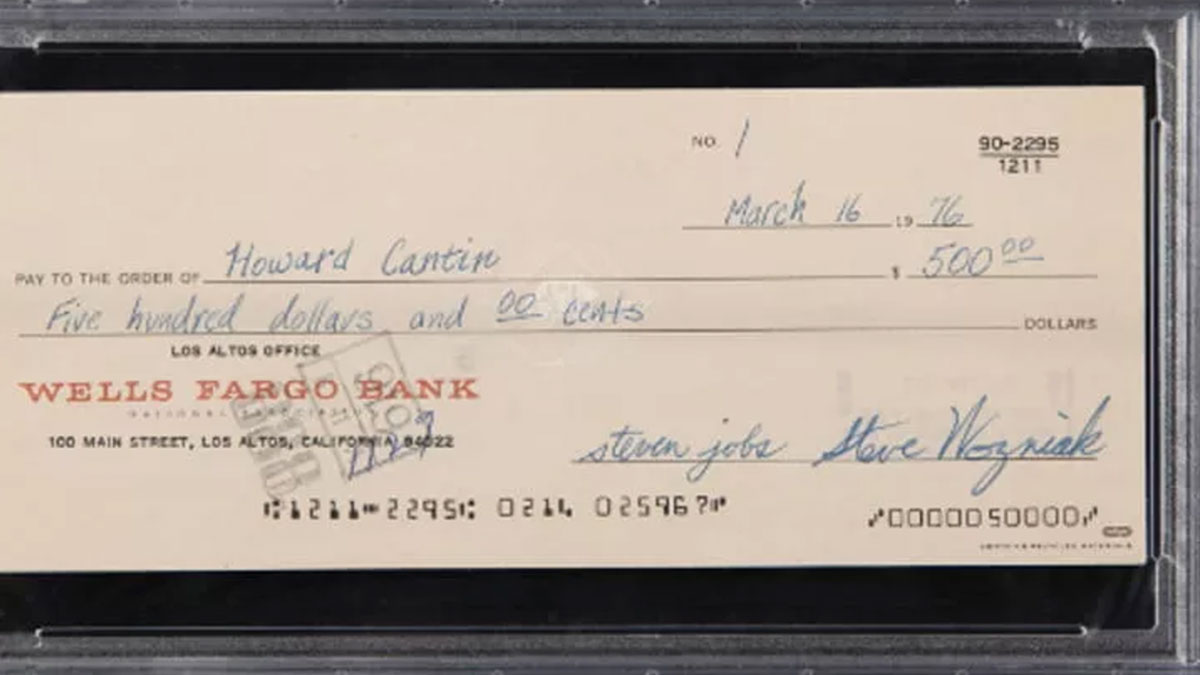 NO. 1
90-2295
1211
March 16 19 76
PAY TO THE ORDER OF Howard Cantin $ 500 00
Five hundred dollars and 00 cents DOLLARS
LOS ALTOS OFFICE
WELLS FARGO BANK
NATIONAL ASSOCIATION
100 MAIN STREET, LOS ALTOS, CALIFORNIA 94022
steven jobs Steve Wozniak
⑆1211⑉2295⑆ 0214 025967⑈ ⑈0000050000⑈